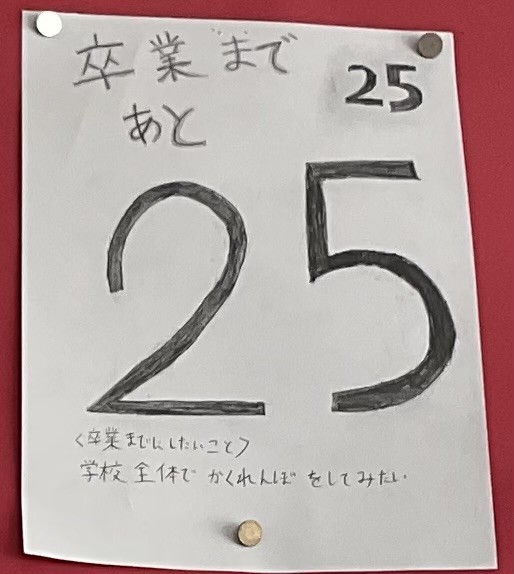 卒業まで
25
あと
25
<卒業までにしたいこと>
学校全体でかくれんぼをしてみたい